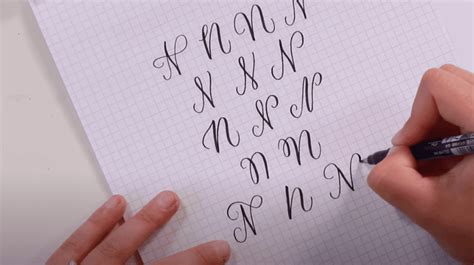 N N N N
N N N
N N N
N N
N N N